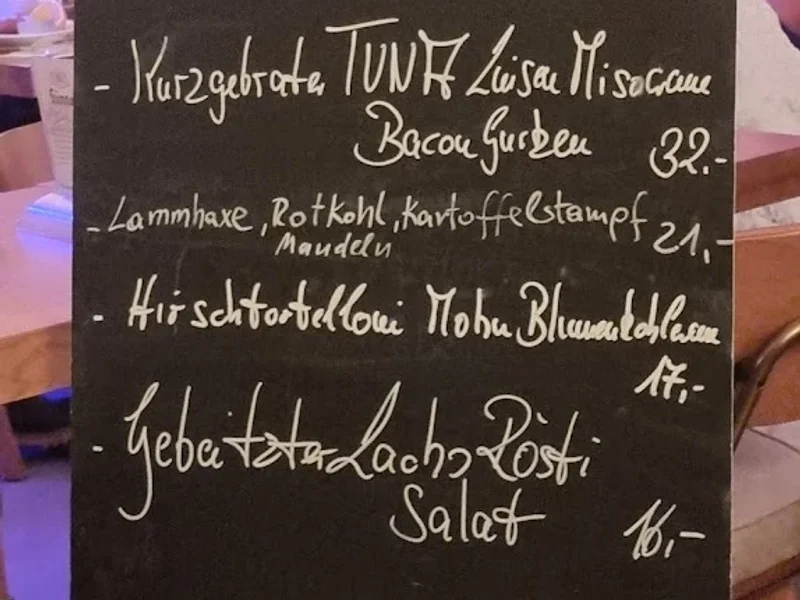 - Kurzgebraten TUNA Linsen Misocreme
Bacon Gurken 32.-
- Lammhaxe, Rotkohl, Kartoffelstampf 21,-
Mandeln
- Hirschtortelloni Mohn Blumenkohlcreme
17,-
- Gebeitzter Lachs Rösti
Salat 16,-